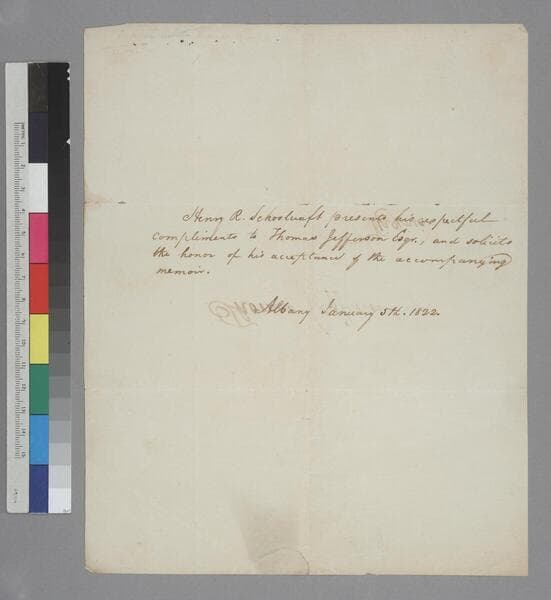 Henry R. Schoolcraft presents his respectful
compliments to Thomas Jefferson Esqr., and solicits
the honor of his acceptance of the accompanying
memoir.
Albany January 5th. 1822.